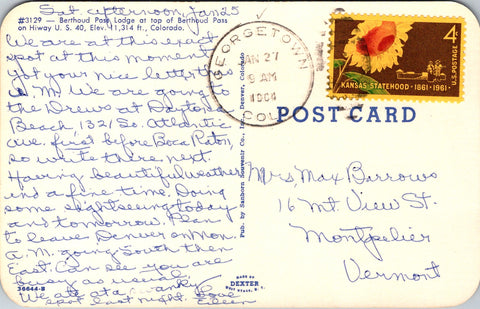 Sat. afternoon, Jan 25
#3129 — Berthoud Pass Lodge at top of Berthoud Pass
on Hiway U. S. 40, Elev. 11,314 ft., Colorado.
We are at this exact
spot at this moment.
Got your nice letter this
A.M. We are going to
the Drews at Daytona
Beach, 132 So. Atlantic
Ave. first before Boca Raton,
so write there next.
Having beautiful weather
and a fine time. Doing
some sightseeing today
and tomorrow. Plan
to leave Denver on Mon.
A.M. going South then
East. Can see you are
busy as usual.
We ate at a swanky
spot last night. Love
Eileen
36644-B
Pub. by Sanborn Souvenir Co., Inc., Denver, Colorado
MADE BY
DEXTER
WEST NYACK, N. Y.
GEORGETOWN
JAN 27
9 AM
1964
COLO.
4¢
U.S. POSTAGE
KANSAS STATEHOOD · 1861-1961 ·
POST CARD
Mrs. Max Barrows
16 Mt. View St.
Montpelier
Vermont